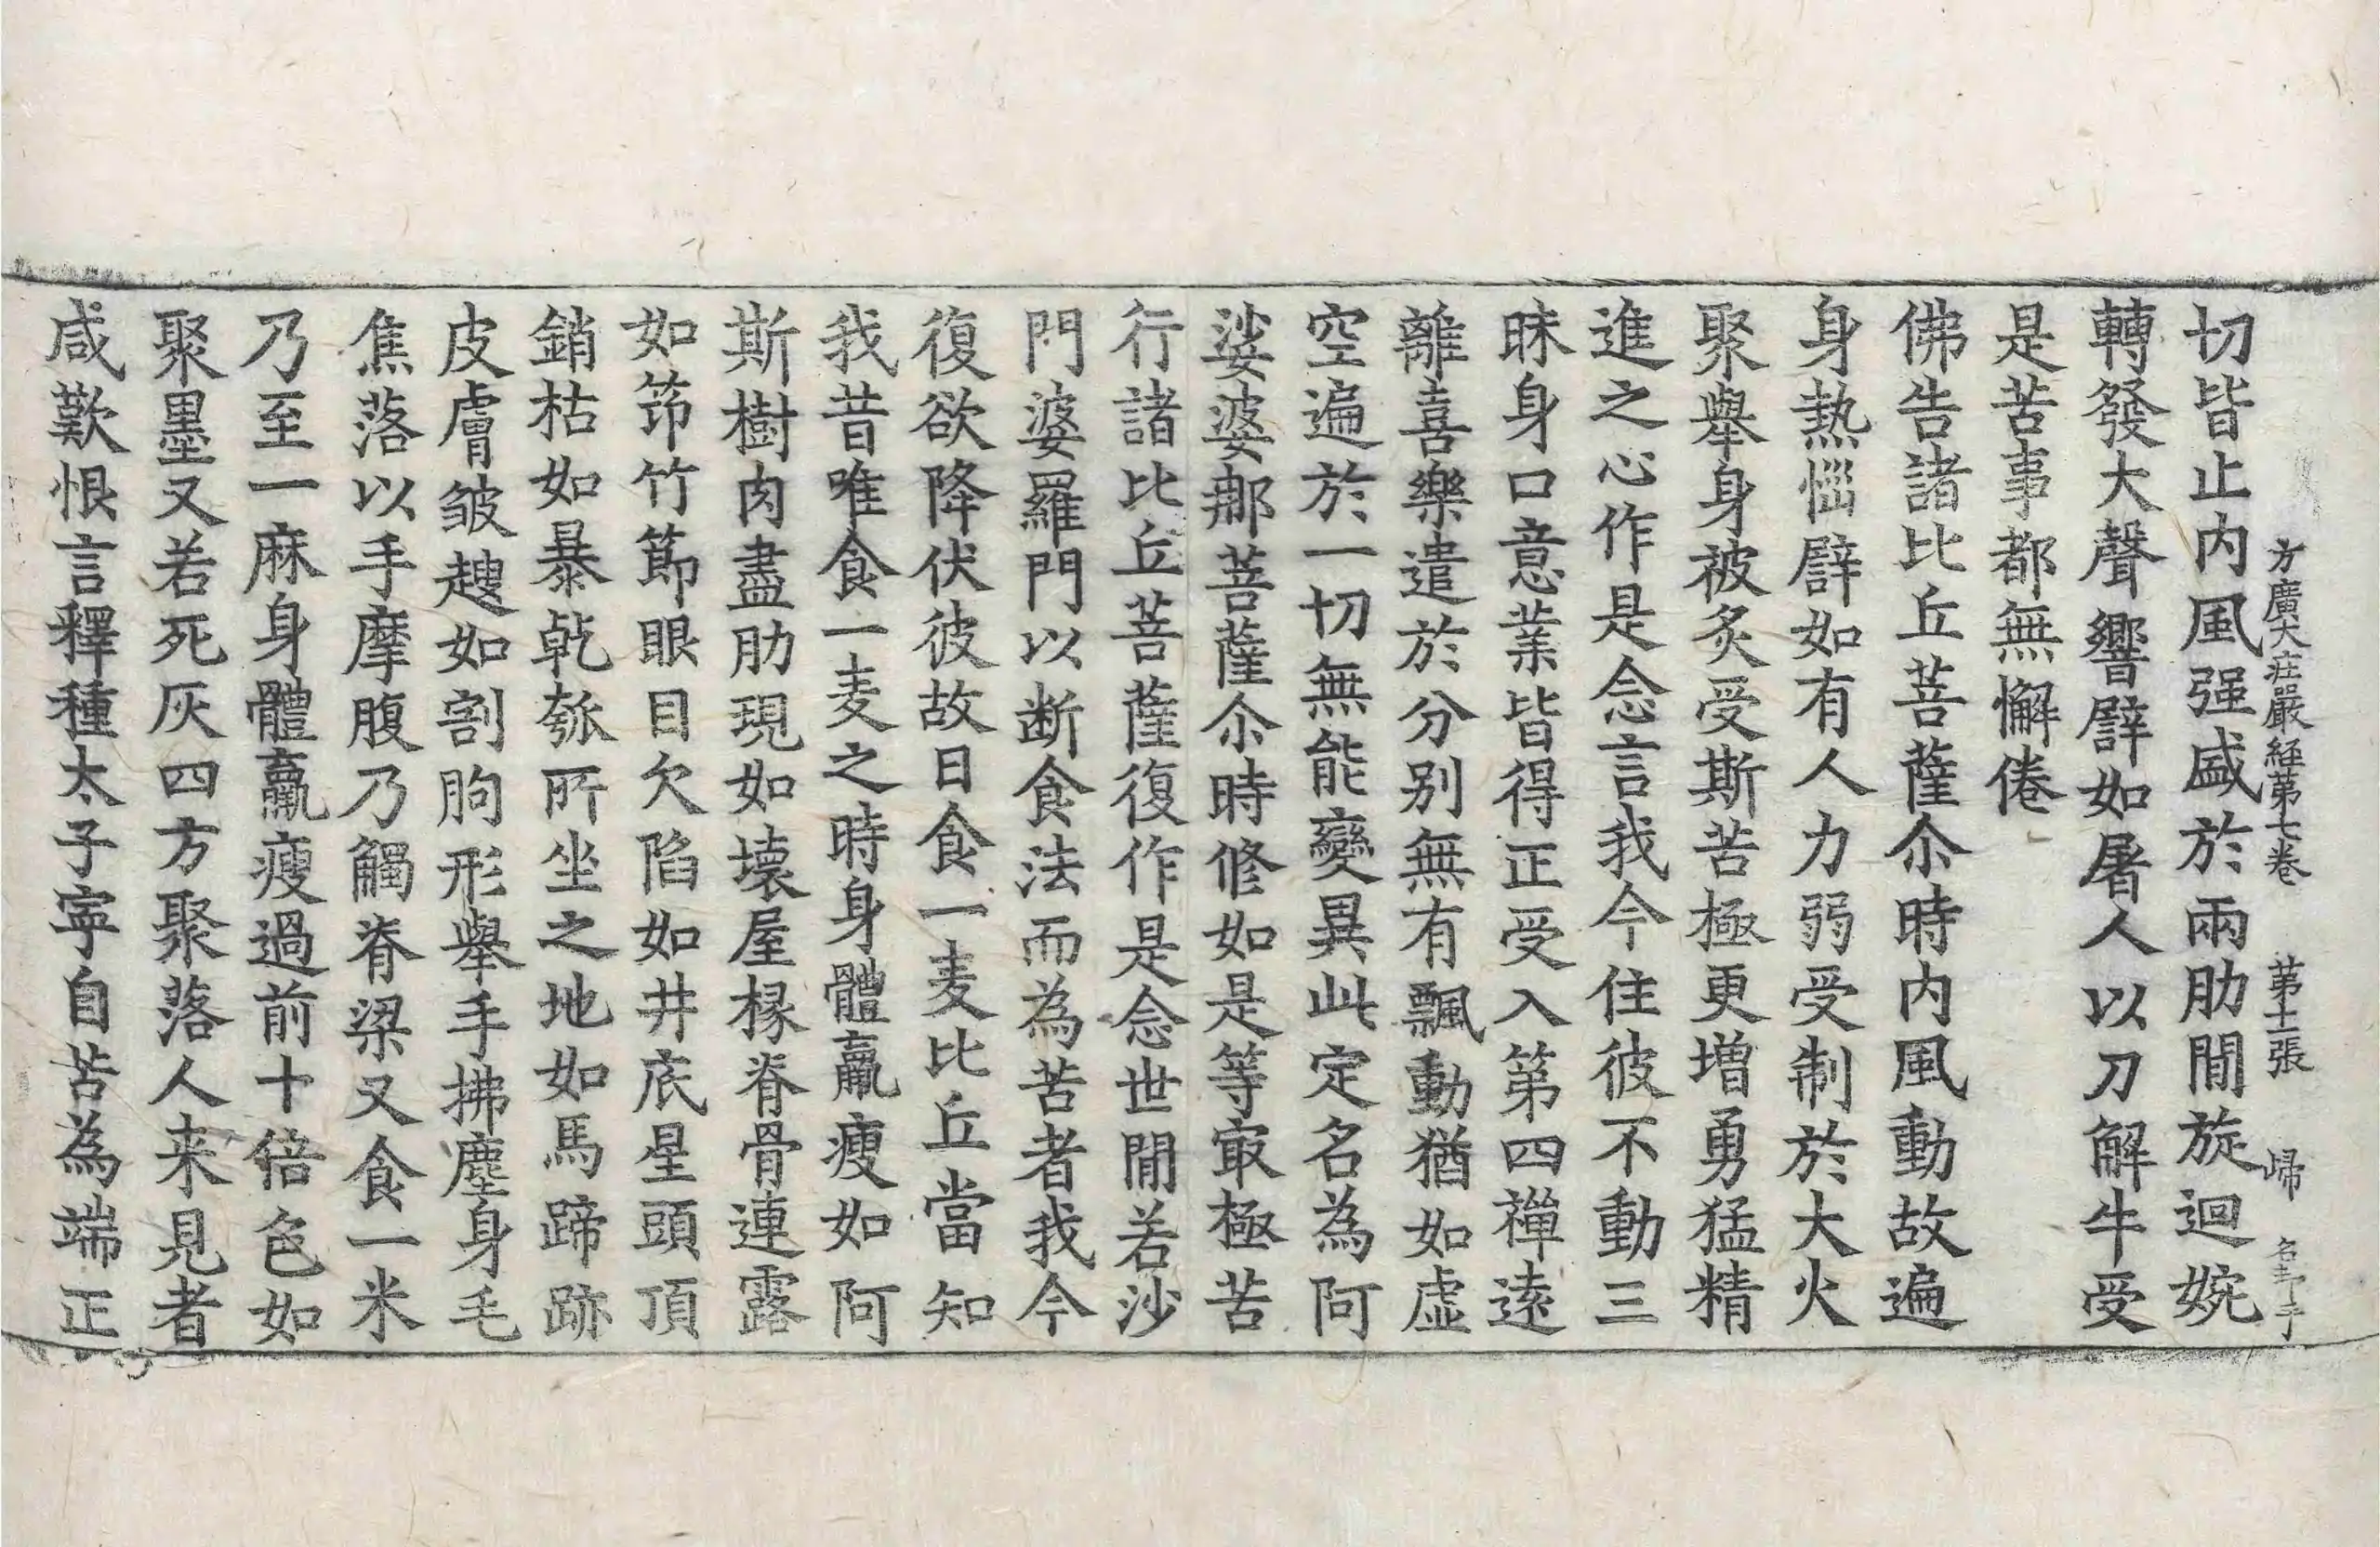 方廣大庄嚴経苐七卷 苐十一張 㱕
切皆止内風强盛於兩肋間旋迴婉
轉發大聲響譬如屠人以刀解牛受
是苦事都無懈倦
佛告諸比丘菩薩尒時内風動故遍
身熱惱譬如有人力弱受制於大火
聚舉身被炙受斯苦極更增勇猛精
進之心作是念言我今住彼不動三
昧身口意業皆得正受入第四禪逺
離喜樂遣於分别無有飄動猶如虛
空遍於一切無能變異此定名為阿
娑婆那菩薩尒時修如是等㝡極苦
行諸比丘菩薩復作是念世間若沙
門婆羅門以断食法而為苦者我今
復欲降伏彼故日食一麦比丘當知
我昔唯食一麦之時身體羸瘦如阿
斯樹肉盡肋現如壞屋椽脊骨連露
如笻竹節眼目欠陷如井底星頭頂
銷枯如暴乹瓠所坐之地如馬蹄跡
皮膚皺趨如割朐形舉手拂塵身毛
焦落以手摩腹乃觸脊梁又食一米
乃至一麻身體羸瘦過前十倍色如
聚墨又若死灰四方聚落人来見者
咸歎恨言釋種太子寜自苦為端正